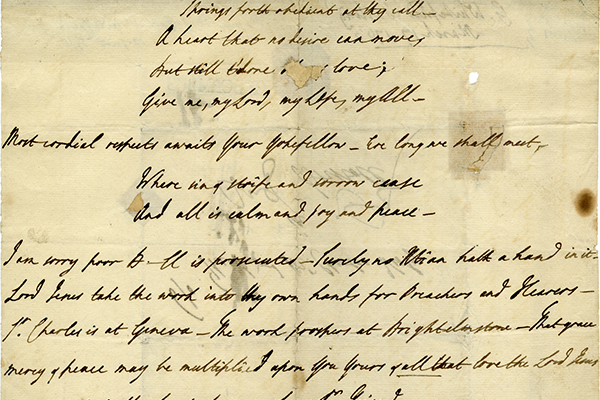 Springs forth obedient at thy call –
A heart that no desire can move,
But still t'adore love;
Give me, my Lord, my Life, my All –
Most cordial respects awaits Your Yokefellow – Ere long we shall meet,
Where sin, strife and sorrow cease
And all is calm and joy and peace –
I am sorry poor is prosecuted – Surely no Xtian hath a hand in it –
Lord Jesus take the work into thy own hands for Preachers and Hearers –
Sr. Charles is at Geneva – The work prospers at Brighthelmstone – That grace
mercy & peace may be multiplied upon You Yours & all that love the Lord Jesus